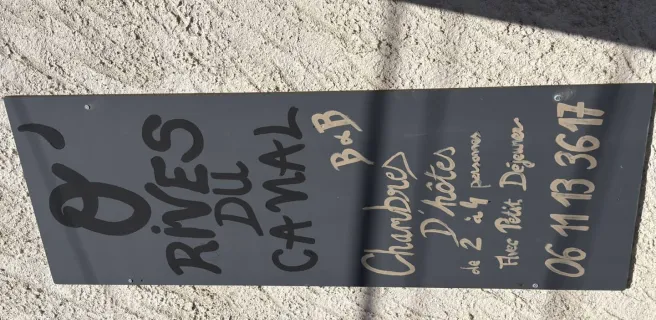 O'
RIVES
DU
CANAL
B&B
Chambres
D'hôtes
de 2 à 4 personnes
Avec Petit Dejeuner
06 11 13 36 17